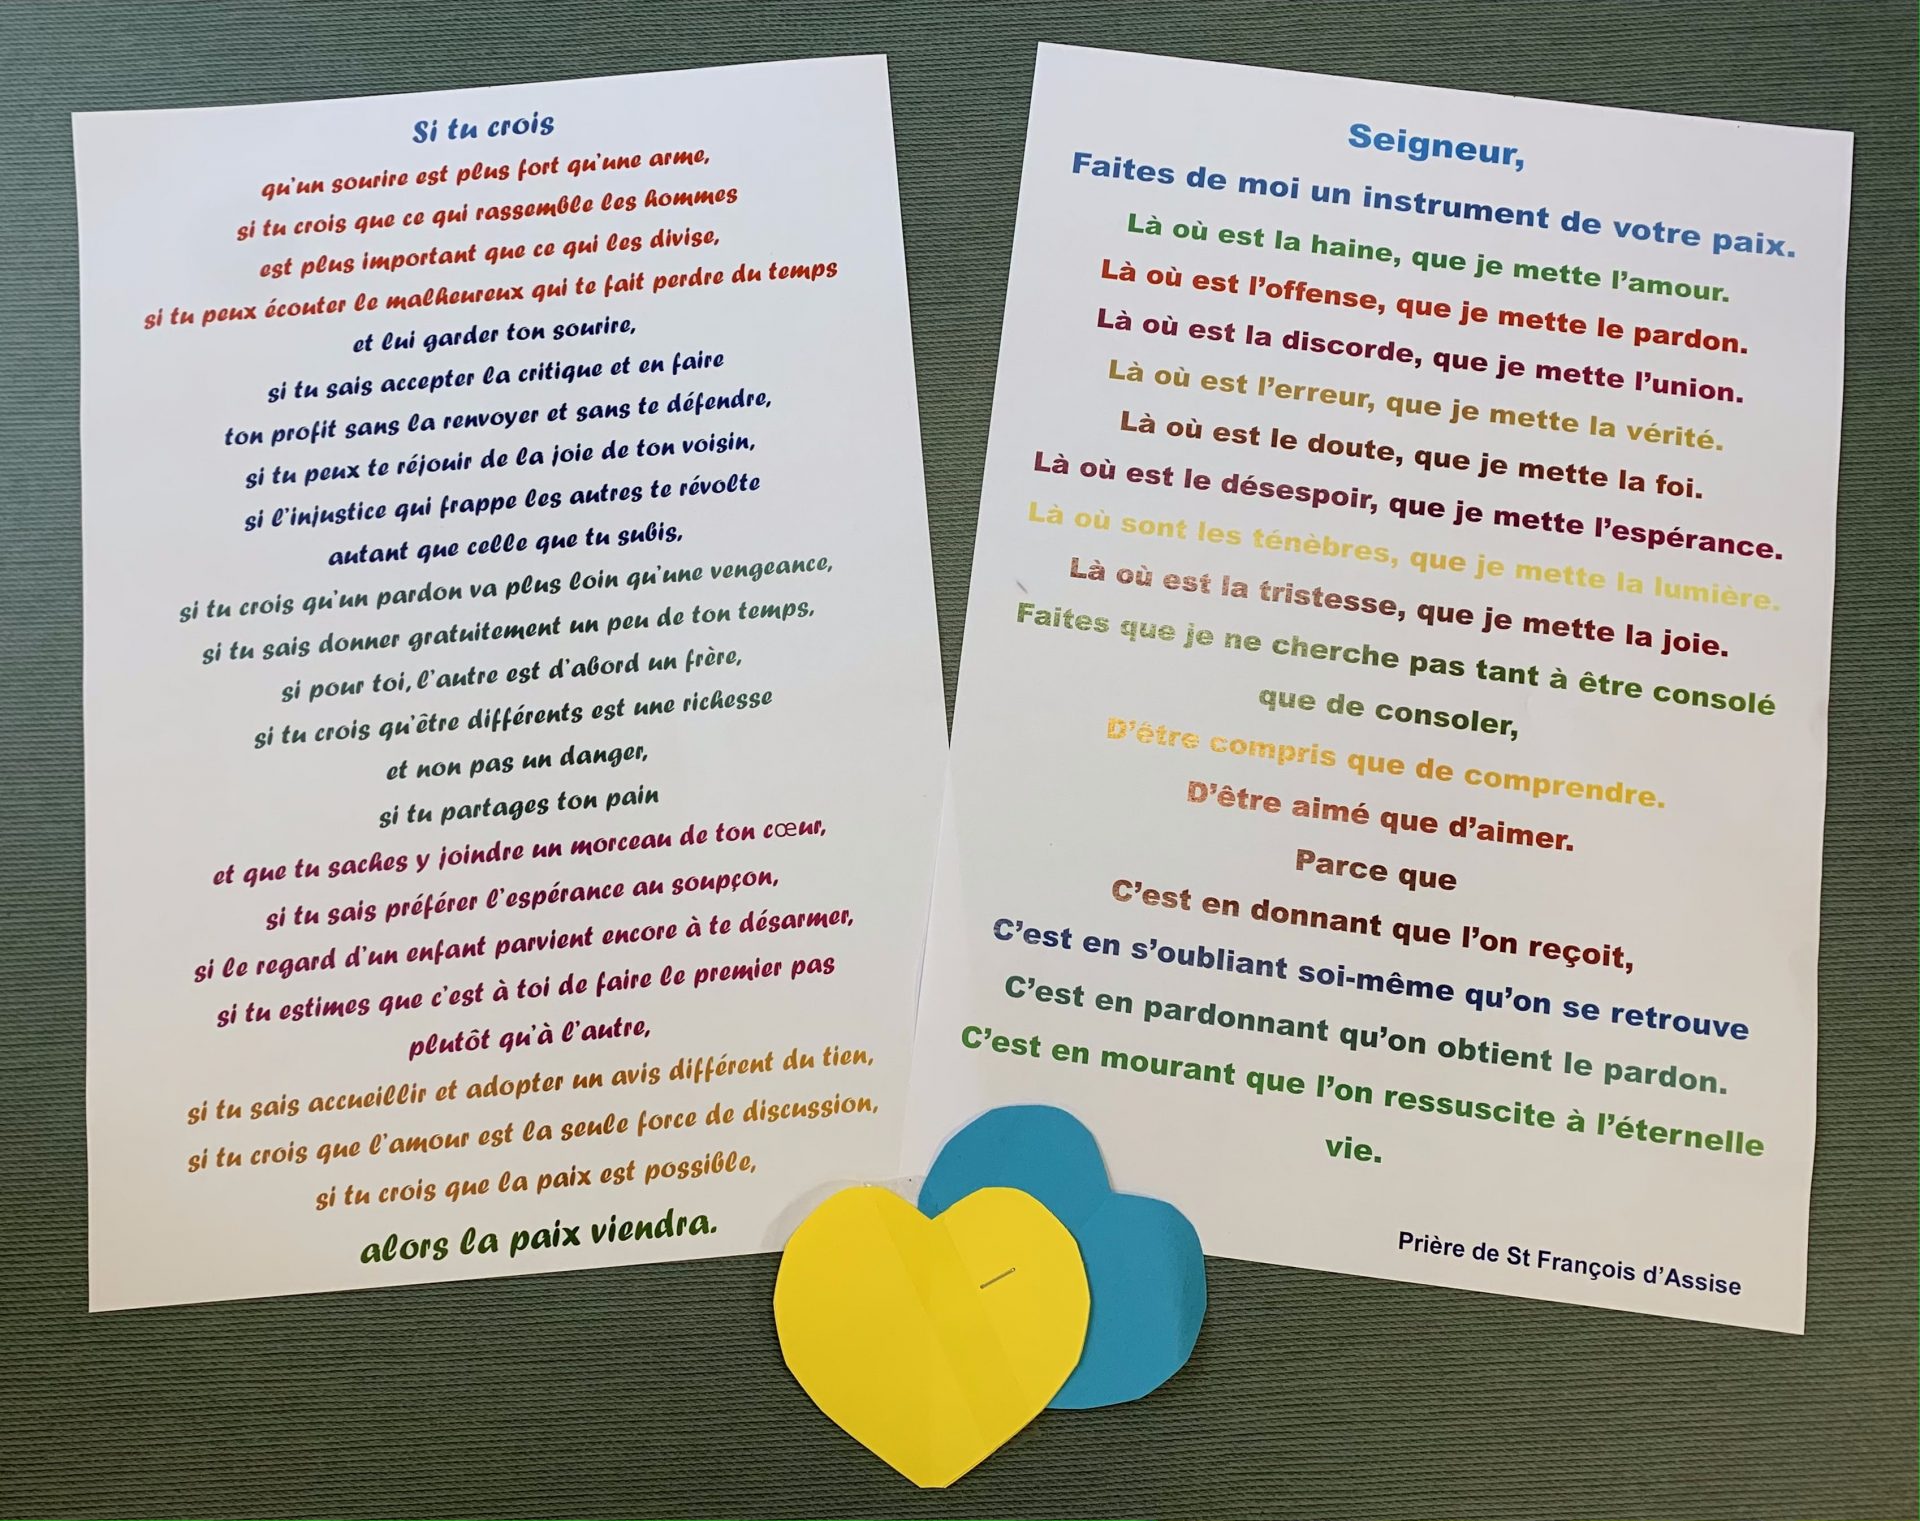 Si tu crois
qu'un sourire est plus fort qu'une arme,
si tu crois que ce qui rassemble les hommes
est plus important que ce qui les divise,
si tu peux écouter le malheureux qui te fait perdre du temps
et lui garder ton sourire,
si tu sais accepter la critique et en faire
ton profit sans la renvoyer et sans te défendre,
si tu peux te réjouir de la joie de ton voisin,
si l'injustice qui frappe les autres te révolte
autant que celle que tu subis,
si tu crois qu'un pardon va plus loin qu'une vengeance,
si tu sais donner gratuitement un peu de ton temps,
si pour toi, l'autre est d'abord un frère,
si tu crois qu'être différents est une richesse
et non pas un danger,
si tu partages ton pain
et que tu saches y joindre un morceau de ton cœur,
si tu sais préférer l'espérance au soupçon,
si le regard d'un enfant parvient encore à te désarmer,
si tu estimes que c'est à toi de faire le premier pas
plutôt qu'à l'autre,
si tu sais accueillir et adopter un avis différent du tien,
si tu crois que l'amour est la seule force de discussion,
si tu crois que la paix est possible,
alors la paix viendra.
Seigneur,
Faites de moi un instrument de votre paix.
Là où est la haine, que je mette l'amour.
Là où est l'offense, que je mette le pardon.
Là où est la discorde, que je mette l'union.
Là où est l'erreur, que je mette la vérité.
Là où est le doute, que je mette la foi.
Là où est le désespoir, que je mette l'espérance.
Là où sont les ténèbres, que je mette la lumière.
Là où est la tristesse, que je mette la joie.
Faites que je ne cherche pas tant à être consolé
que de consoler,
D'être compris que de comprendre.
D'être aimé que d'aimer.
Parce que
C'est en donnant que l'on reçoit,
C'est en s'oubliant soi-même qu'on se retrouve
C'est en pardonnant qu'on obtient le pardon.
C'est en mourant que l'on ressuscite à l'éternelle
vie.
Prière de St François d'Assise